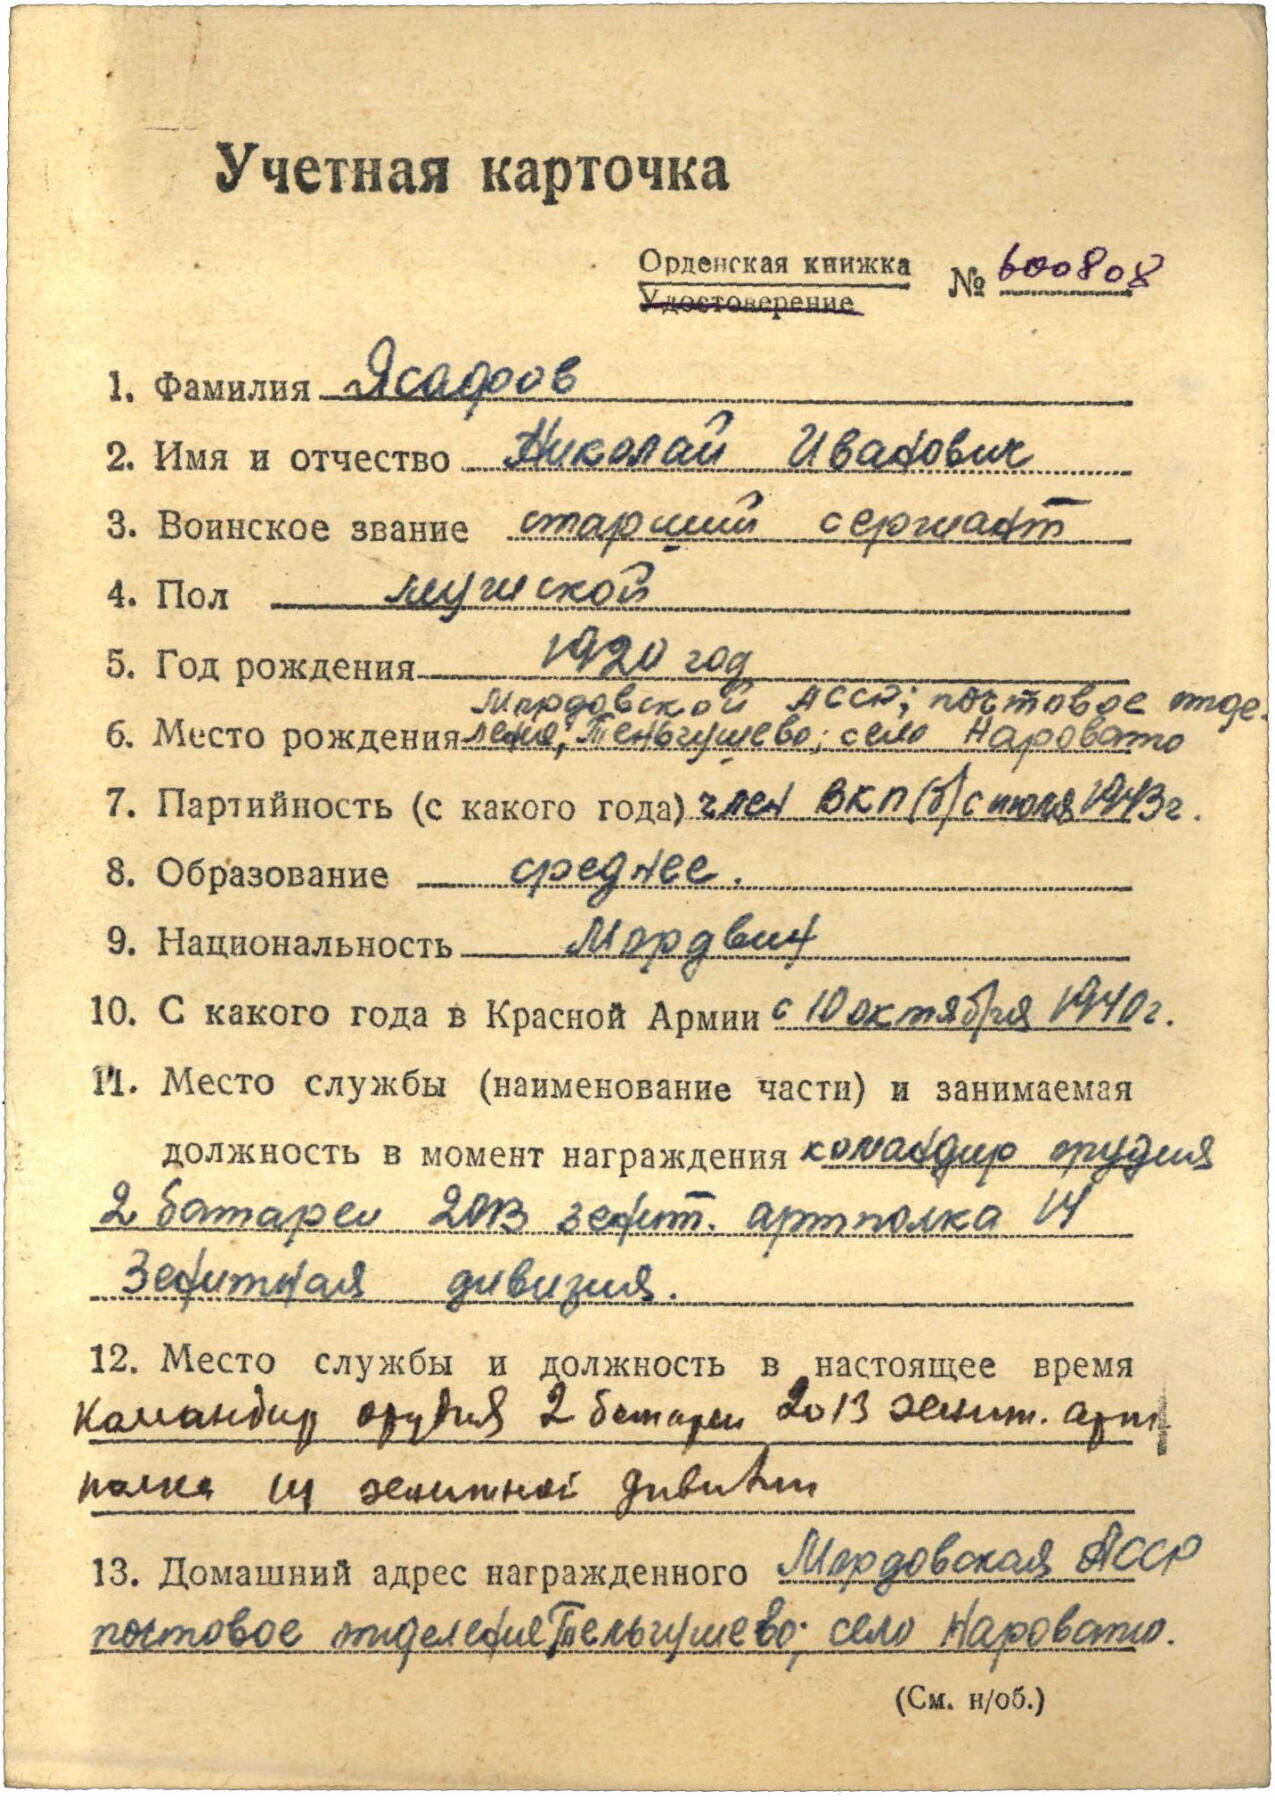 Учетная карточка
Орденская книжка № 600808
Удостоверение
1. Фамилия Ясафров
2. Имя и отчество Николай Иванович
3. Воинское звание старший сержант
4. Пол мужской
5. Год рождения 1920 год
Мордовской АССР; почтовое отде-
6. Место рождения ление; Теньгушево; село Наровато
7. Партийность (с какого года) член ВКП(б) с июля 1943 г.
8. Образование среднее.
9. Национальность Мордвин
10. С какого года в Красной Армии с 10 октября 1940 г.
11. Место службы (наименование части) и занимаемая
должность в момент награждения командир орудия
2 батареи 2013 зенит. артполка
Зенитная дивизия.
12. Место службы и должность в настоящее время
Командир орудия 2 батареи 2013 зенит. арт
полка зенитной дивизии
13. Домашний адрес награжденного Мордовская АССР
почтовое отделение Теньгушево; село Наровато.
(См. н/об.)